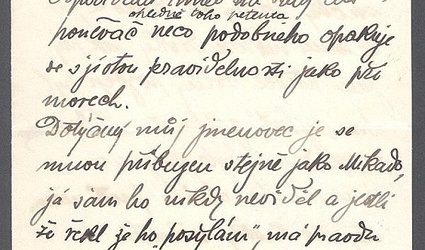 ohledně toho petenta
poněvač neco podobneho opakuje
se s jistou pravidelnosti jako při
morech.
Dotyčný můj jmenovec je se
mnou příbuzen stejně jako Mikado,
já sám ho nikdy neviděl a jestli
že řekl že ho „posýlám", má pravdu